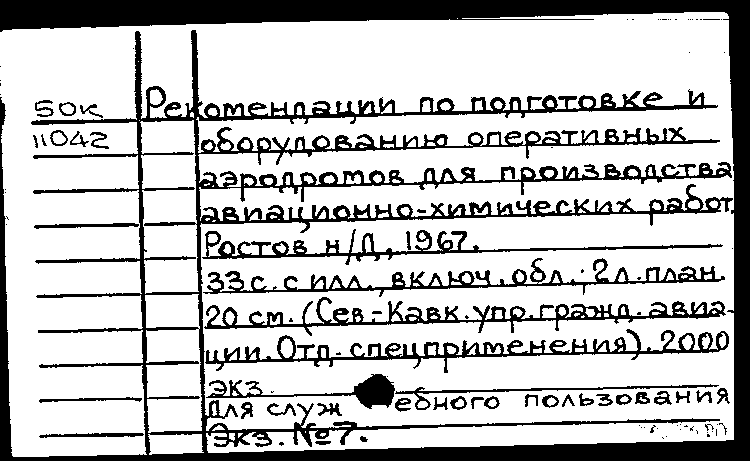 БОК Рекомендации по подготовке и
11042 оборудованию оперативных
аэродромов для производства
авиационно-химических работ.
Ростов н/Д, 1967.
33 с. с илл., включ. обл.; 2 л. план.
20 см. (Сев.-Кавк. упр. гражд. авиа-
ции. Отд. спецприменения). 2000
экз.
Для служебного пользования
Экз. №7.